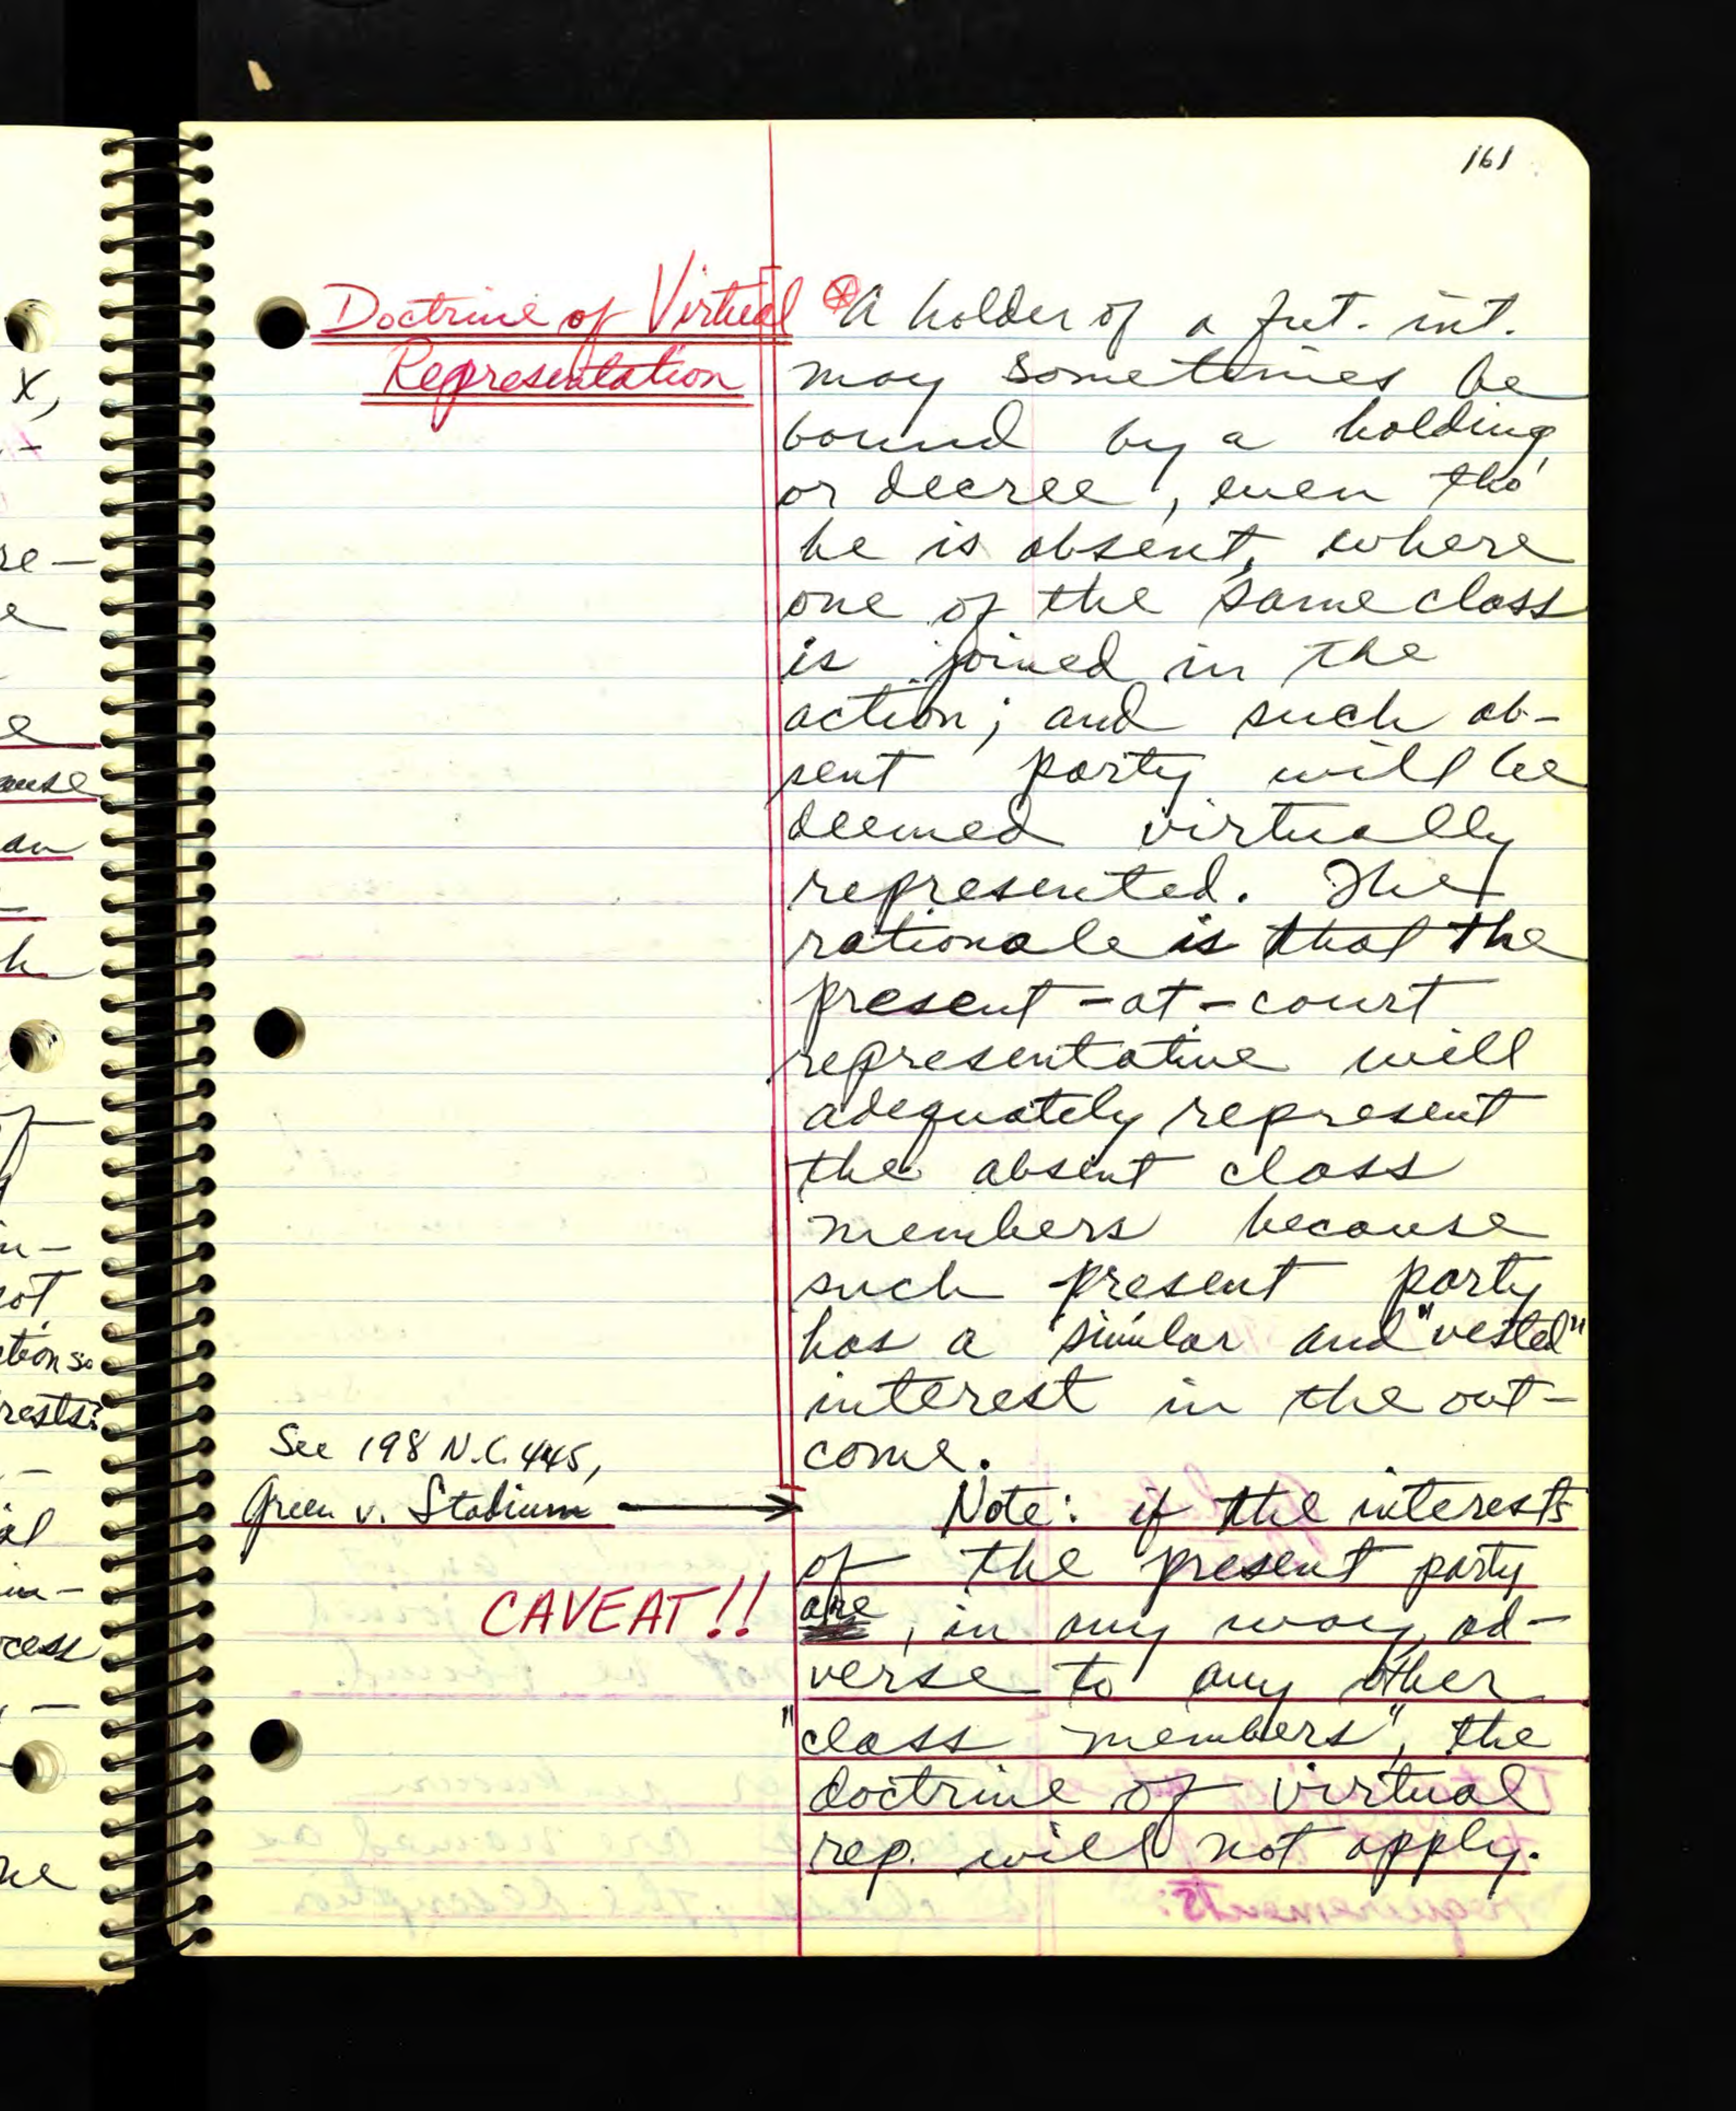 161
Doctrine of Virtual
Representation
A holder of a fut. int.
may sometimes be
bound by a holding,
or decree, even tho'
he is absent, where
one of the same class
is joined in the
action; and such ab-
sent party will be
deemed virtually
represented. The
rationale is that the
present-at-court
representative will
adequately represent
the absent class
members because
such present party
has a similar and "vested"
interest in the out-
come.
See 198 N.C. 445,
Green v. Stadium
CAVEAT!!
Note: if the interests
of the present party
are, in any way, ad-
verse to any other
"class members", the
doctrine of virtual
rep. will not apply.